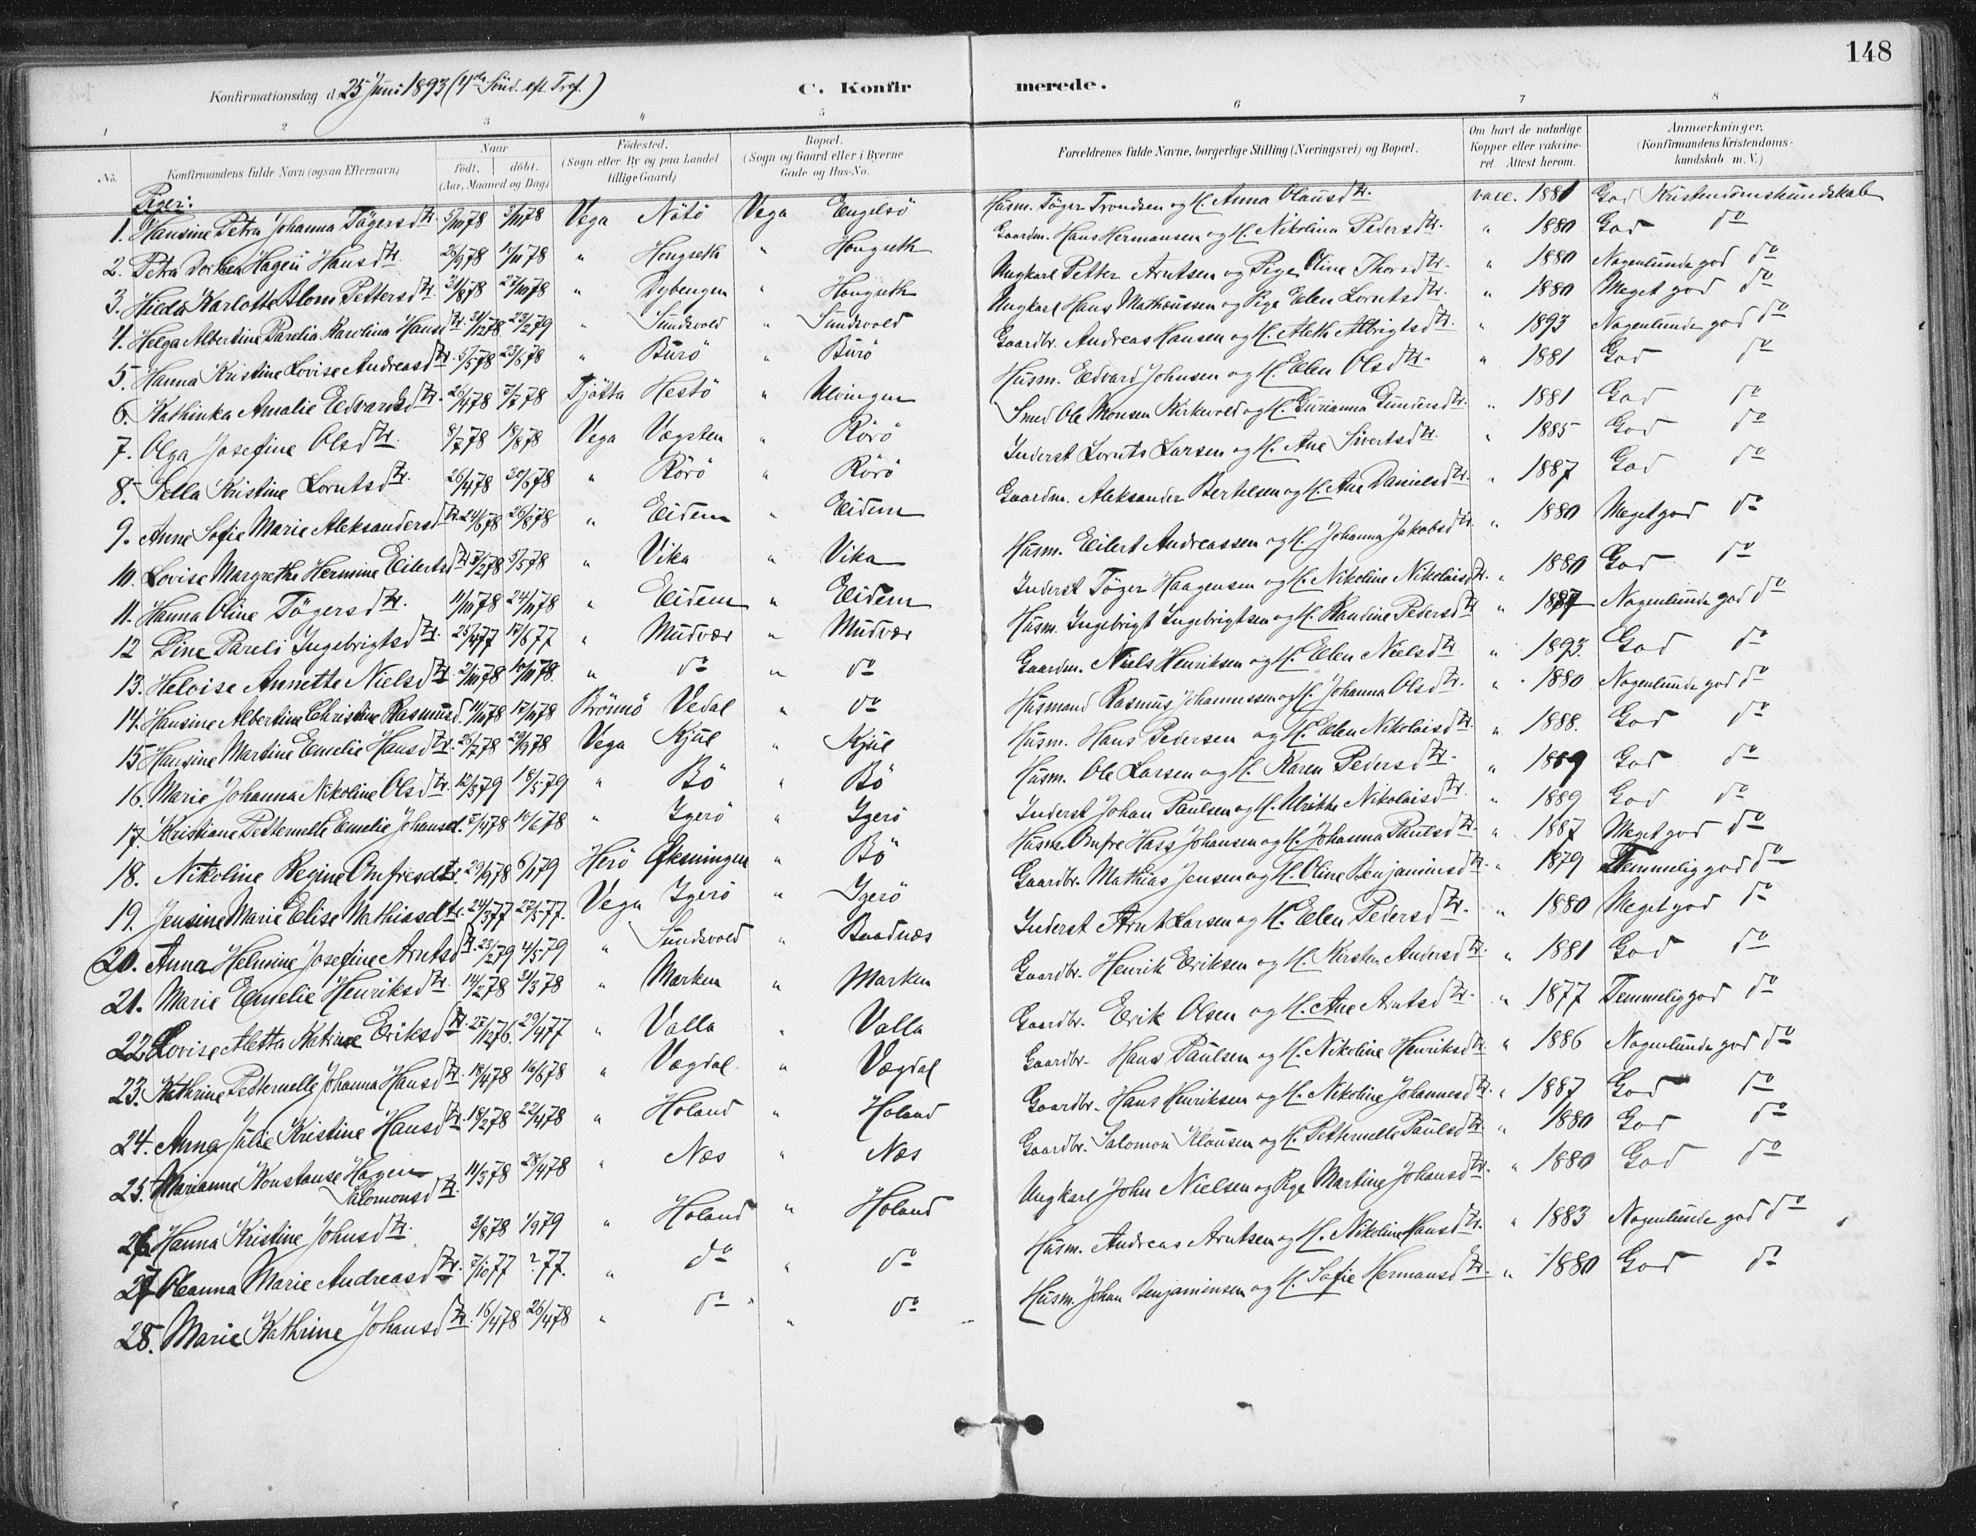 148
Konfirmationsdag d. 25 Juni 1893 (4de Sönd. eft. Tref.)
C. Konfirmerede.
1 2 3 4 5 6 7 8
No. Konfirmandens fulde Navn (ogsaa Efternavn) Naar Födt. döbt. (Aar, Maaned og Dag) Födested. (Sogn eller By og paa Landet tillige Gaard) Bopæl. (Sogn og Gaard eller i Byerne Gade og Hus-No. Forældrenes fulde Navne, borgerlige Stilling (Næringsvei) og Bopæl. Om havt de naturlige Kopper eller vakcineret. Attest herom. Anmærkninger. (Konfirmandens Kristendomskundskab m. V.)
Piger:
1. Hansine Petra Johanna Tögersdtr. Vega Nötö Vega Engelsö Husm. Töger Trondsen og H. Anna Olausdtr. vacc. 1881 God Kristendomskundskab
2. Petra Hagen Hansdtr. 〃 Hongseth 〃 Hongseth Gaardm. Hans Hermansen og H. Nikolina Pedersdtr. 〃 1880 God do
3. Hilda Karlotte Blom Pettersdtr. 〃 Dybengen 〃 Hongseth Ungkarl Petter Arntsen og Pige Oline Thorsdtr. 〃 1880 Nogenlunde god do
4. Helga Albertine Parelia Karolina Hansdtr. 〃 Sundsvold 〃 Sundsvold Ungkarl Hans Matheussen og Pige Elen Lorntsdtr. 〃 1880 Meget god do
5. Hanna Kristine Lovise Andreasdtr. 5/5 78 〃 Burö 〃 Burö Gaardbr. Andreas Hansen og H. Aleth Albrigtsdtr. 〃 1893 Nogenlunde god do
6. Kathinka Amalie Edvardsdtr. 26/4 78 7/7 78 Tjötta Hestö 〃 Ulvingen Husm. Edvard Johnsen og H. Elen Olsdtr. 〃 1881 God do
7. Olga Josefine Olsdtr. 8/7 78 18/8 78 Vega Vægsten 〃 Rörö Smed Ole Monsen Kirkvold og H. Gurianna Gundersdtr. 〃 1881 God do
8. Sella Kristine Lorntsdtr. 26/4 78 30/6 78 〃 Rörö 〃 Rörö Inderst Lornts Larsen og H. Ane Sivertsdtr. 〃 1885 God do
9. Anne Sofie Marie Aleksandersdtr. 24/6 78 25/8 78 〃 Eidem 〃 Eidem Gaardm. Aleksander Bertelsen og H. Ane Danielsdtr. 〃 1887 God do
10. Lovise Margrethe Hermine Eilertsdtr. 3/2 78 5/5 78 〃 Vika 〃 Vika Husm. Eilert Andreassen og H. Johanna Jakobsdtr. 〃 1880 Meget god do
11. Hanna Oline Tögersdtr. 11/10 78 24/11 78 〃 Eidem 〃 Eidem Inderst Töger Haagensen og H. Nikoline Nikolaisdtr. 〃 1880 God do
12 Dine Pareli Ingebrigtsdtr. 25/4 77 17/6 77 〃 Mudvær 〃 Mudvær Husm. Ingebrigt Ingebrigtsen og H. Randine Pedersdtr. 〃 1887 Nogenlunde god do
13. Heloise Annette Nielsdtr. 〃 do 〃 do Gaardm. Niels Henriksen og H. Elen Nielsdtr. 〃 1893 God do
14. Hansine Albertine Christine Rasmusd. Brönnö Vedal 〃 do Husmand Rasmus Johannessen og H. Johanna Olsdtr. 〃 1880 Nogenlunde god do
15. Hansine Martine Emelie Hansdtr. 29/9 78 Vega Kjul 〃 Kjul Husm. Hans Pedersen og H. Elen Nikolaisdtr. 〃 1888. God do
16. Marie Johanna Nikoline Olsdtr. 12/3 79 18/5 79 〃 Bö 〃 Bö Husm. Ole Larsen og H. Karen Pedersdtr. 〃 1889 God do
17. Kristiane Petternelle Emelie Johansd. 〃 Igerö 〃 Igerö Inderst Johan Paulsen og H. Ulrikke Nikolaisdtr. 〃 1889 God do
18. Nikoline Regine Onfresdtr. 29/9 78 6/1 79 Herö Öksningen 〃 Bö Husm. Onfre Hass Johansen og H. Johanna Paulsdtr. 〃 1887 Meget god do
19. Jensine Marie Elise Mathiasdtr. 24/3 77 27/5 77. Vega Igerö 〃 Igerö Gaardbr. Mathias Jensen og H. Oline Benjaminsdtr. 〃 1879 Temmelig god do
20. Anna Helmine Josefine Arntsdtr. 23/2 79 4/5 79 〃 Sundsvold 〃 Baadnæs Inderst Arnt Larsen og H. Elen Pedersdtr. 〃 1880 Meget god do
21. Marie Emelie Henriksdtr. 14/2 78 31/3 78 〃 Marken 〃 Marken Gaardbr. Henrik Eriksen og H. Kirsten Andersdtr. 〃 1881 God do
22. Lovise Aletta Katrine Eriksdtr. 27/12 76. 29/4 77 〃 Valla 〃 Valla Gaardbr. Erik Olsen og H. Ane Arntsdtr. 〃 1877 Temmelig god do
23. Kathrine Petternelle Johanna Hansdtr. 18/4 78 16/6 78 〃 Vægdal 〃 Vægdal Gaardbr. Hans Paulsen og H. Nikoline Henriksdtr. 〃 1886 Nogenlunde god do
24. Anna Julie Kristine Hansdtr. 18/2 78 22/4 78 〃 Holand 〃 Holand Gaardbr. Hans Henriksen og H. Nikoline Johannesdtr. 〃 1887 God do
25. Marianne Konstanse Hagen Salomonsdtr. 11/3 78 28/4 78 〃 Næs 〃 Næs Gaardbr. Salomon Klausen og H. Petternelle Paulsdtr. 〃 1880 God do
26 Hanna Kristine Johnsdtr. 3/8 78 1/9 79 〃 Holand 〃 Holand Ungkarl John Nielsen og Pige Martine Johansdtr. 〃 1880 God do
27 Oleanna Marie Andreasdtr. 7/10 77 ? 77. 〃 do 〃 do Husm. Andreas Arntsen og H. Nikoline Hansdtr. 〃 1883 Nogenlunde god do
28. Marie Kathrine Johansdtr. 16/4 78 26/4 78 〃 do 〃 do Husm. Johan Benjaminsen og H. Sofie Hermansdtr. 〃 1880 God do